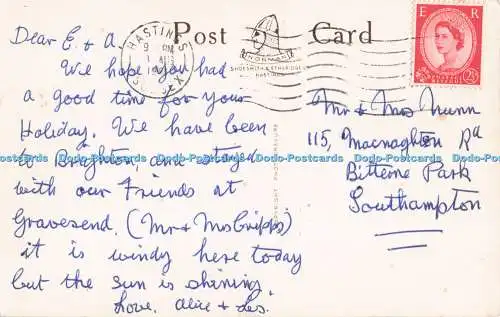 Post Card
HASTINGS
9 PM
Dear E & A.
We hope you had
a good time for your
Holiday. We have been
to Brighton, and stayed
with our Friends at
Gravesend, (Mr & Mrs Cripps)
it is windy here today
but the sun is shining
Love, Alice & Les.
E R
2½
Mr & Mrs Nunn
115, Macnaghten Rd
Bitterne Park
Southampton
Dodo-Postcards Dodo-Postcards Dodo-Postcards Dodo-Postcards Dodo-Postcards Dodo-Postcards